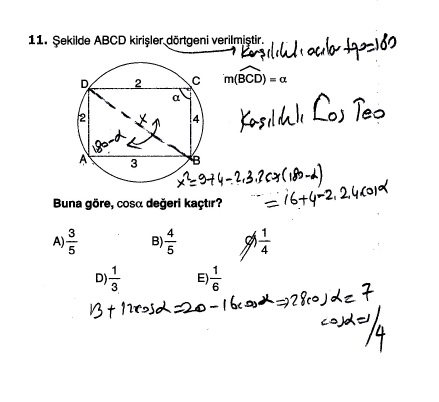 11. Şekilde ABCD kirişler dörtgeni verilmiştir.
Karşılıklı açılar top=180
D 2 C
m(BCD) = α
α
2 x 4
Karşılıklı Cos Teo
180-α
A 3 B
x²=9+4-2.3.2cos(180-α)
=16+4-2.2.4cosα
Buna göre, cosα değeri kaçtır?
A) 3/5 B) 4/5 C) 1/4
D) 1/3 E) 1/6
13+12cosα=20-16cosα⇒28cosα=7
cosα=1/4